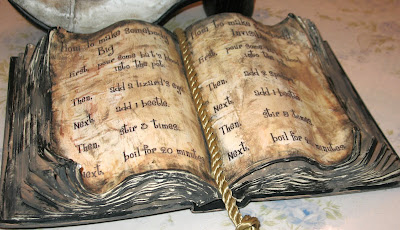 How to make Somebody
Big
First, pour some bat's blood
into the pot.
Then, add a lizard's eye
Next, add 1 beetle.
Then, stir 3 times.
Next, boil for 20 minutes
How to make
Invisible
First, pour some
into the pot.
Then, add 2
Next, add 1 beetle
Then, stir 3 times.
Next, boil for minutes